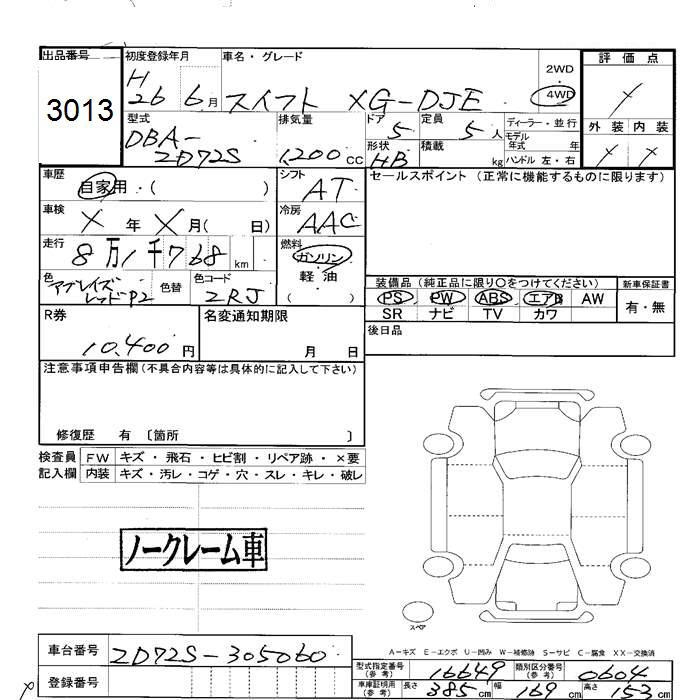 出品番号 初度登録年月 車名・グレード 2WD ・ 4WD 評価点
3013 H 26 6月 スイフト XG-DJE
型式 排気量 ドア 定員 ディーラー・並行 外装 内装
DBA-ZD72S 1,200cc 5 5人 モデル年式 年
形状 HB 積載 kg ハンドル 左・右
車歴 シフト セールスポイント (正常に機能するものに限ります)
自家用・( ) AT
車検 冷房
X 年 X 月( 日) AAC
走行 燃料
8万1千768km ガソリン・軽油
色 色替 色コード ( )
P2 ZRJ
装備品 (純正品に限り〇をつけてください) 新車保証書
PS PW ABS エアB AW 有・無
SR ナビ TV カワ
R券 名変通知期限 後日品
10,400円 月 日
注意事項申告欄 (不具合内容等は具体的に記入して下さい)
修復歴 有 〔箇所 〕
検査員 FW キズ・飛石・ヒビ割・リペア跡・×要
記入欄 内装 キズ・汚レ・コゲ・穴・スレ・キレ・破レ
ノークレーム車
スペア
A-キズ E-エクボ U-凹み W-補修跡 S-サビ C-腐食 XX-交換済
車台番号 ZD72S-305060
型式指定番号(参考) 16649 類別区分番号(参考) 0604
登録番号
車庫証明用(参考) 長さ 385cm 幅 169cm 高さ 153cm